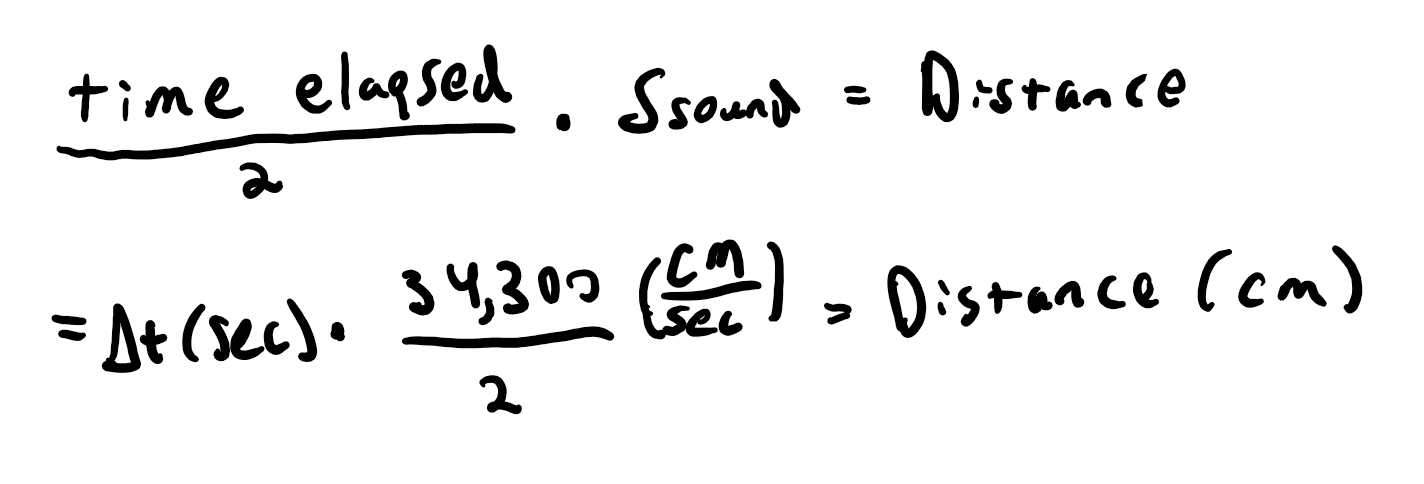 time elapsed / 2 · Ssound = Distance
= Δt(sec) · 34,300 / 2 (cm/sec) = Distance (cm)